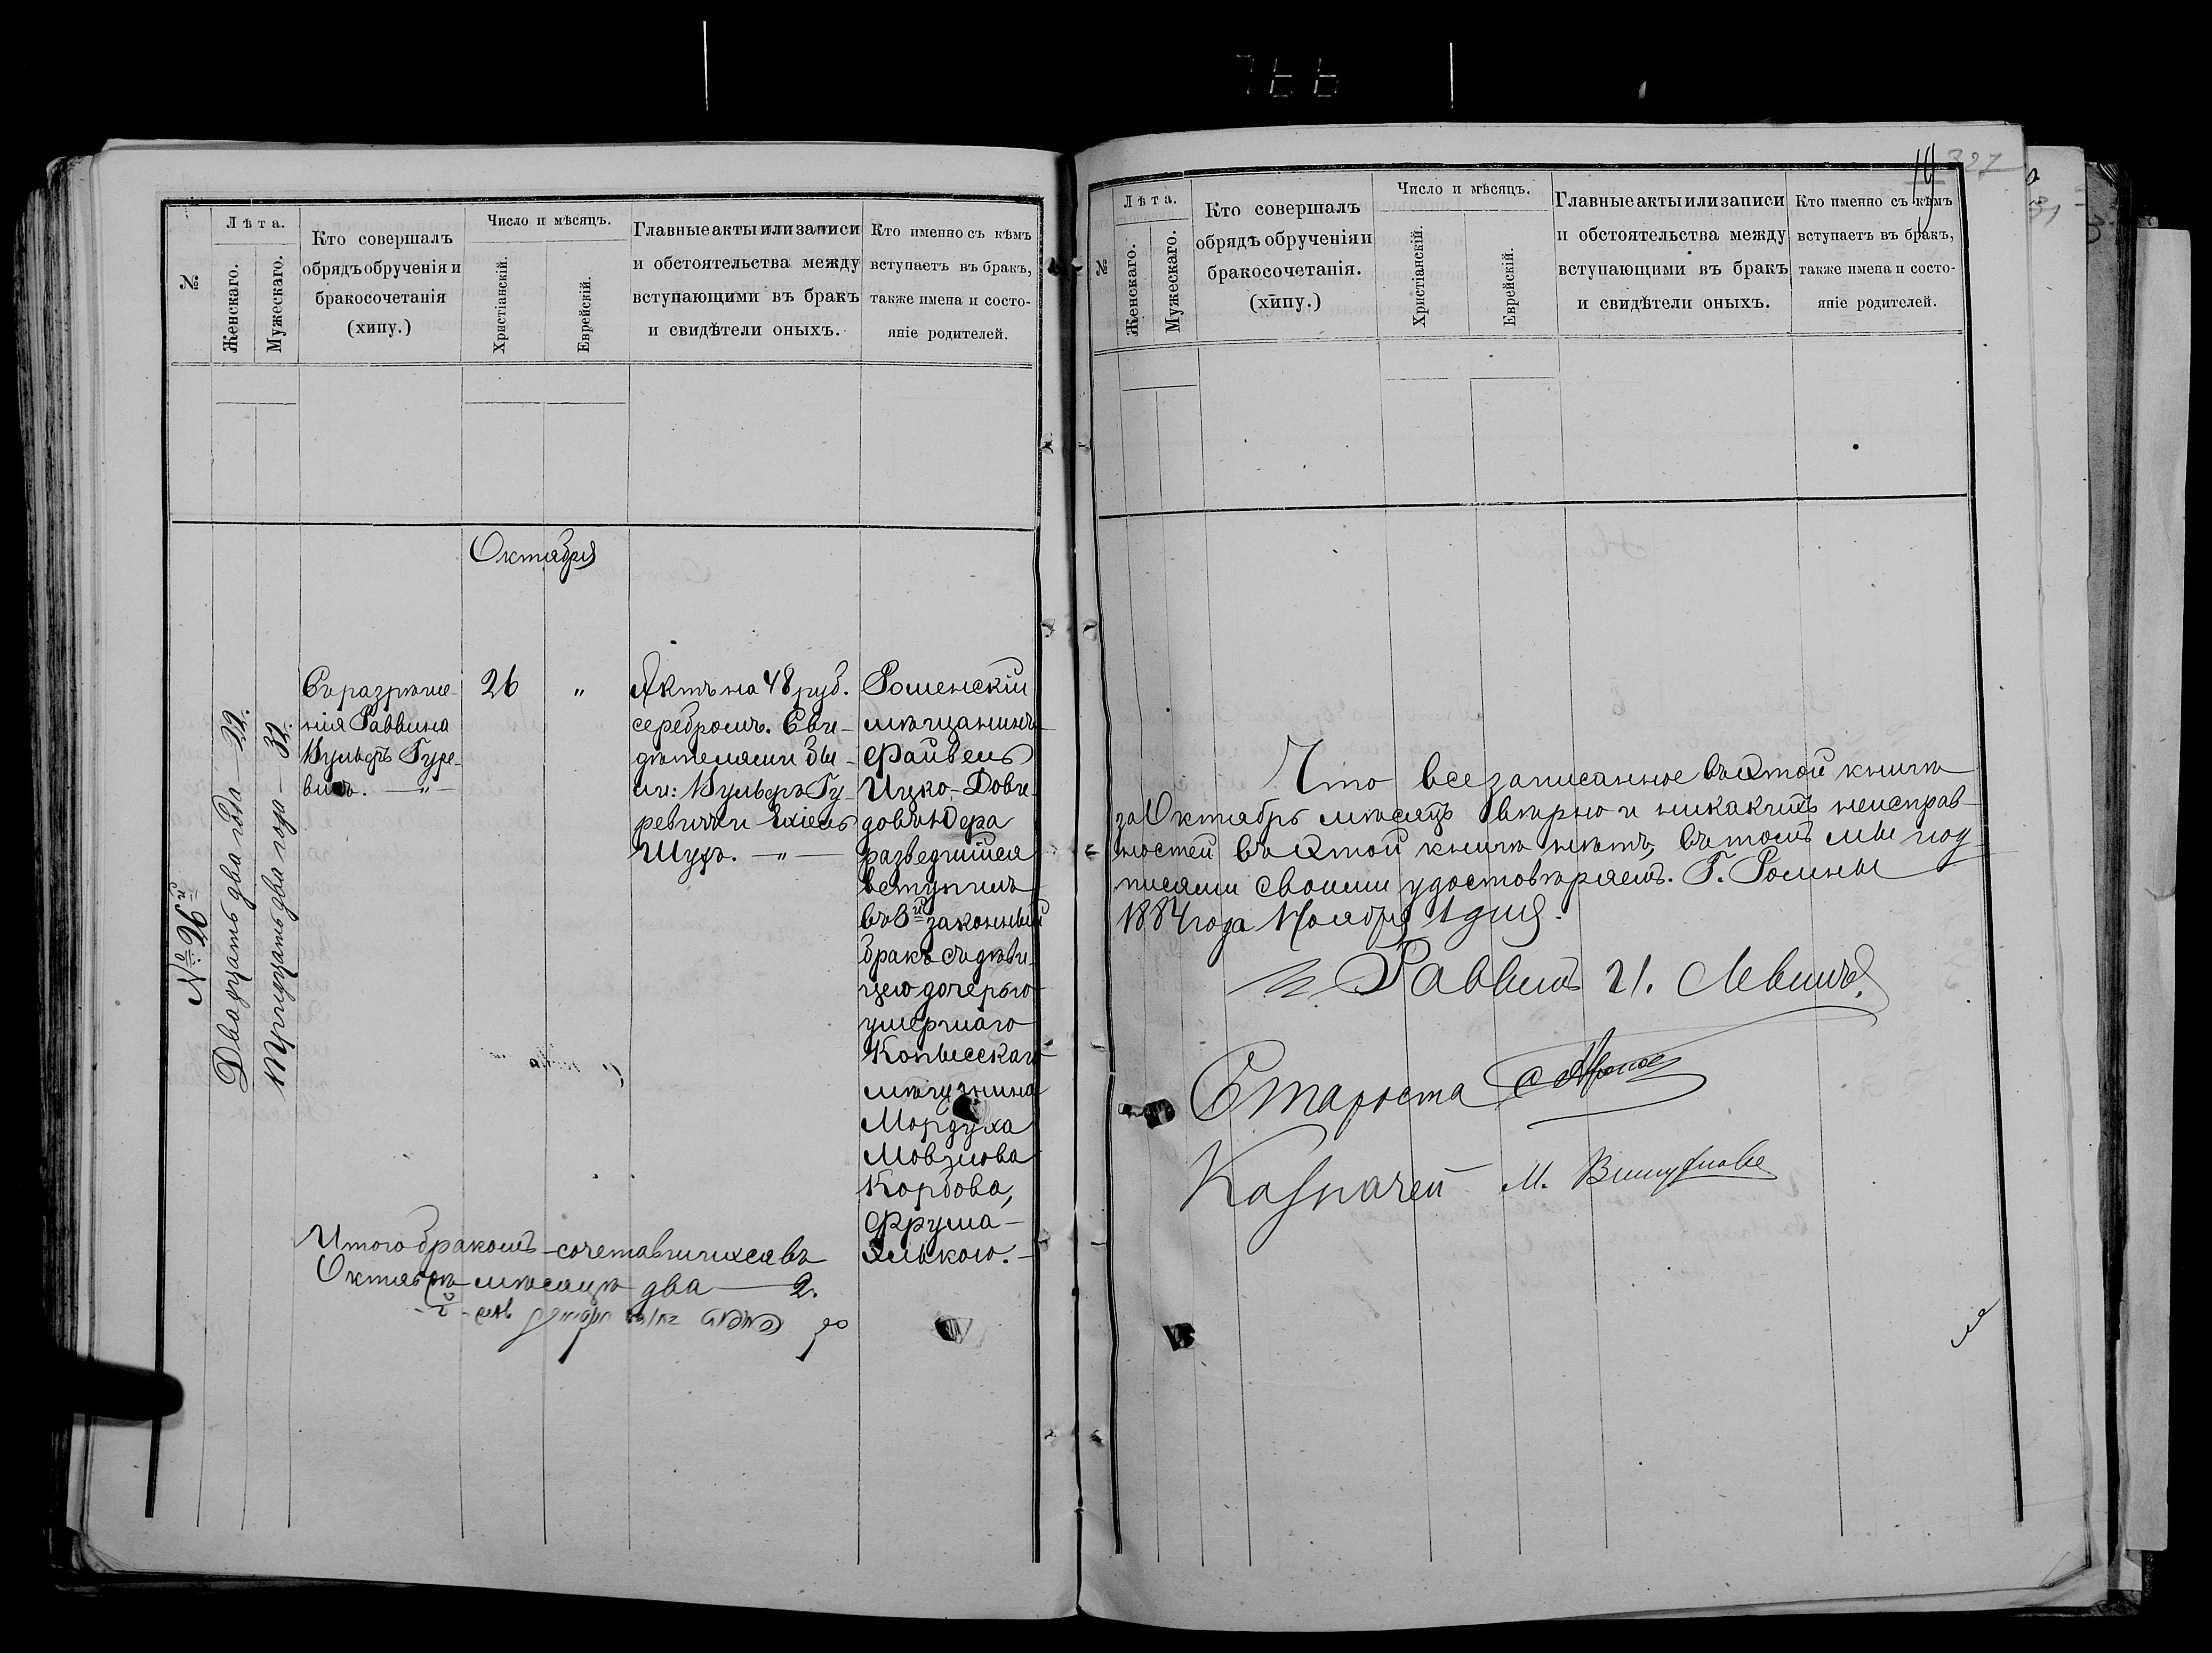 766
№
Лѣта.
Женскаго.
Мужескаго.
Кто совершалъ
обрядъ обрученія и
бракосочетанія
(хипу.)
Число и мѣсяцъ.
Христіанскій.
Еврейскій.
Главные акты или записи
и обстоятельства между
вступающими въ бракъ
и свидѣтели оныхъ.
Кто именно съ кѣмъ
вступаетъ въ бракъ,
также имена и состо-
яніе родителей.
Октября
№ 26
Двадцать два года — 22.
Тридцать два года — 32.
Съ разрѣше-
нія Раввина
Вульфъ Гуре-
вичъ. — „ —
26
„
Актъ на 48 руб.
серебромъ. Сви-
дѣтелями бы-
ли: Вульфъ Гу-
ревичъ и Ехіель
Шуфъ. — „ —
Роменскій
мѣщанинъ
Файвель
Ицко-Довы-
довъ Юдера
разведшійся
вступилъ
въ 3й законный
бракъ съ дѣви-
цею дочерью
умершаго
Копысскаго
мѣщанина
Мордуха
Мовшова
Корбова,
Фрума-
Элькою. —
Итого бракомъ-сочетавшихся въ
Октябрѣ мѣсяцѣ два — 2.
19
327
Лѣта.
№
Женскаго.
Мужескаго.
Кто совершалъ
обрядъ обрученія и
бракосочетанія.
(хипу.)
Число и мѣсяцъ.
Христіанскій.
Еврейскій.
Главные акты или записи
и обстоятельства между
вступающими въ бракъ
и свидѣтели оныхъ.
Кто именно съ кѣмъ
вступаетъ въ бракъ,
также имена и состо-
яніе родителей.
Что все записанное въ этой книгѣ
за Октябрь мѣсяцъ вѣрно и никакихъ неисправ-
ностей въ этой книгѣ нѣтъ, въ томъ мы под-
писями своими удостовѣряемъ. Г. Ромны
1884 года Ноября 1 дня.
Раввинъ И. Левинъ
Староста
Казначей М.
31